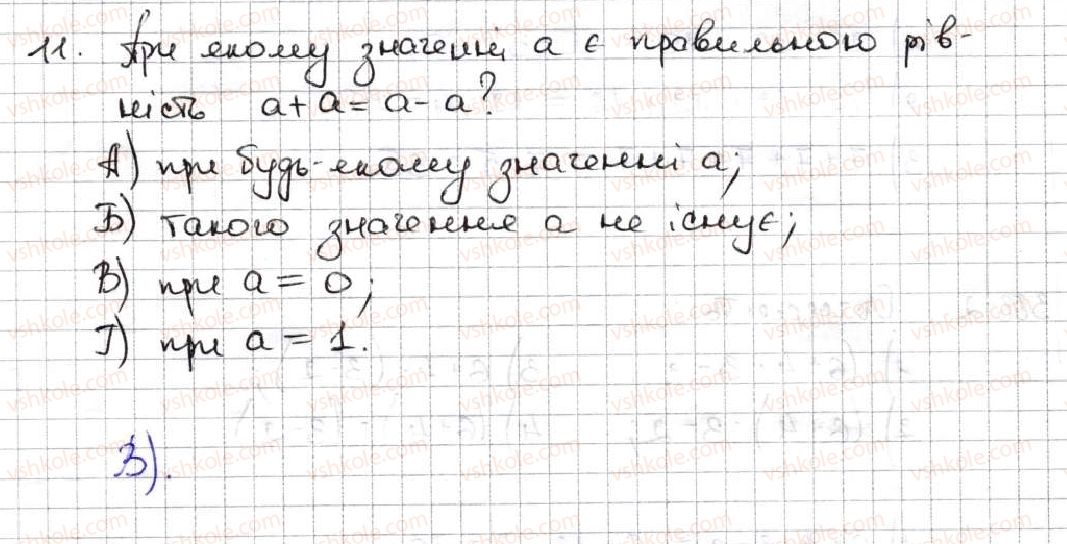 11. При якому значенні a є правильною рів-
ність a + a = a - a?
А) при будь-якому значенні a;
Б) такого значення a не існує;
В) при a = 0;
Г) при a = 1.
В).
vshkole.com